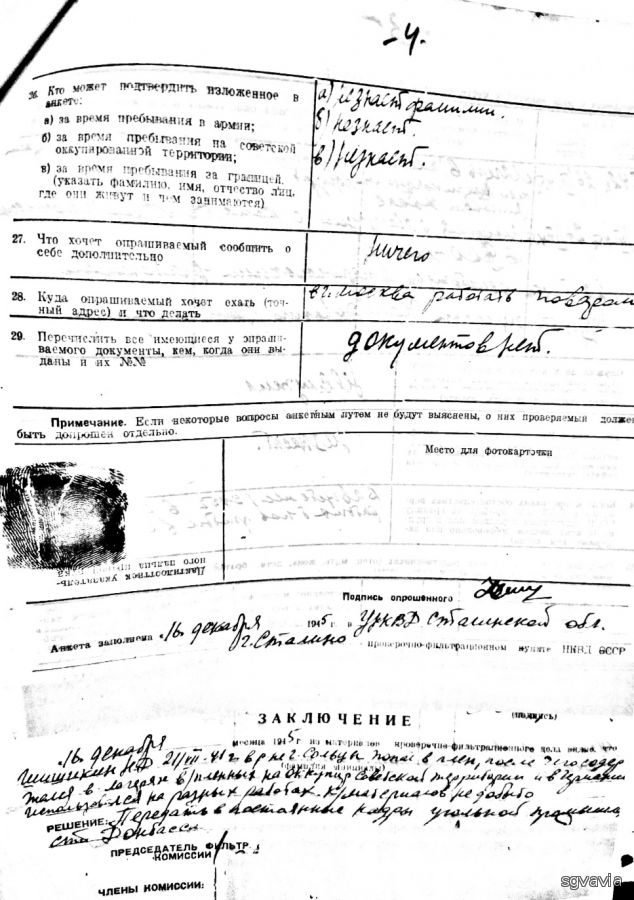 - 4.
26. Кто может подтвердить изложенное в
анкете:
а) за время пребывания в армии;
б) за время пребывания на советской
оккупированной территории;
в) за время пребывания за границей.
(указать фамилию, имя, отчество лиц,
где они живут и чем занимаются)
а) незнает фамилии.
б) незнает.
в) незнает.
27. Что хочет опрашиваемый сообщить о
себе дополнительно
ничего
28. Куда опрашиваемый хочет ехать (точ-
ный адрес) и что делать
в г. Москва работать поваром
29. Перечислить все имеющиеся у опраши-
ваемого документы, кем, когда они вы-
даны и их №№
документов нет.
Примечание. Если некоторые вопросы анкетным путем не будут выяснены, о них проверяемый должен
быть допрошен отдельно.
Место для фотокарточки
Подпись опрошенного
Анкета заполнена „16“ декабря 1945 г. в УНКВД Сталинской обл.
г. Сталино проверочно-фильтрационном пункте НКВД СССР
(подпись)
ЗАКЛЮЧЕНИЕ
16 декабря месяца 1945 г. из материалов проверочно-фильтрационного дела видно, что
Шишикин 21/VII-41 г. в р-не г. Сольцы попал в плен, после чего содер
жался в лагерях в/пленных на оккупир Советской территории и в Германии
использовался на разных работах. К/материалов не добыто
РЕШЕНИЕ: Передать в постоянные кадры угольной промышлен
сти Донбасса
ПРЕДСЕДАТЕЛЬ ФИЛЬТР.
КОМИССИИ
ЧЛЕНЫ КОМИССИИ:
sgvavia